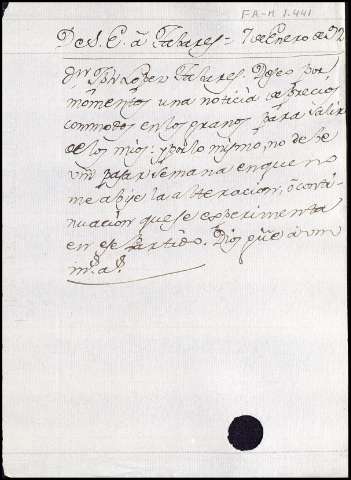 FA-M 1.441
De S. E. â Tabares = 7 de Enero de 72
Dn. Jph Lopez Tabares. Deseo por
momentos una noticia de precios
commodos en los granos para salir
de los mios: y por lo mismo, no dexe
vm pasar semana en que no
me abise la alteracion, ô conti-
nuacion que se experimenta
en ese Partido. Dios gue â vm
ms. as.